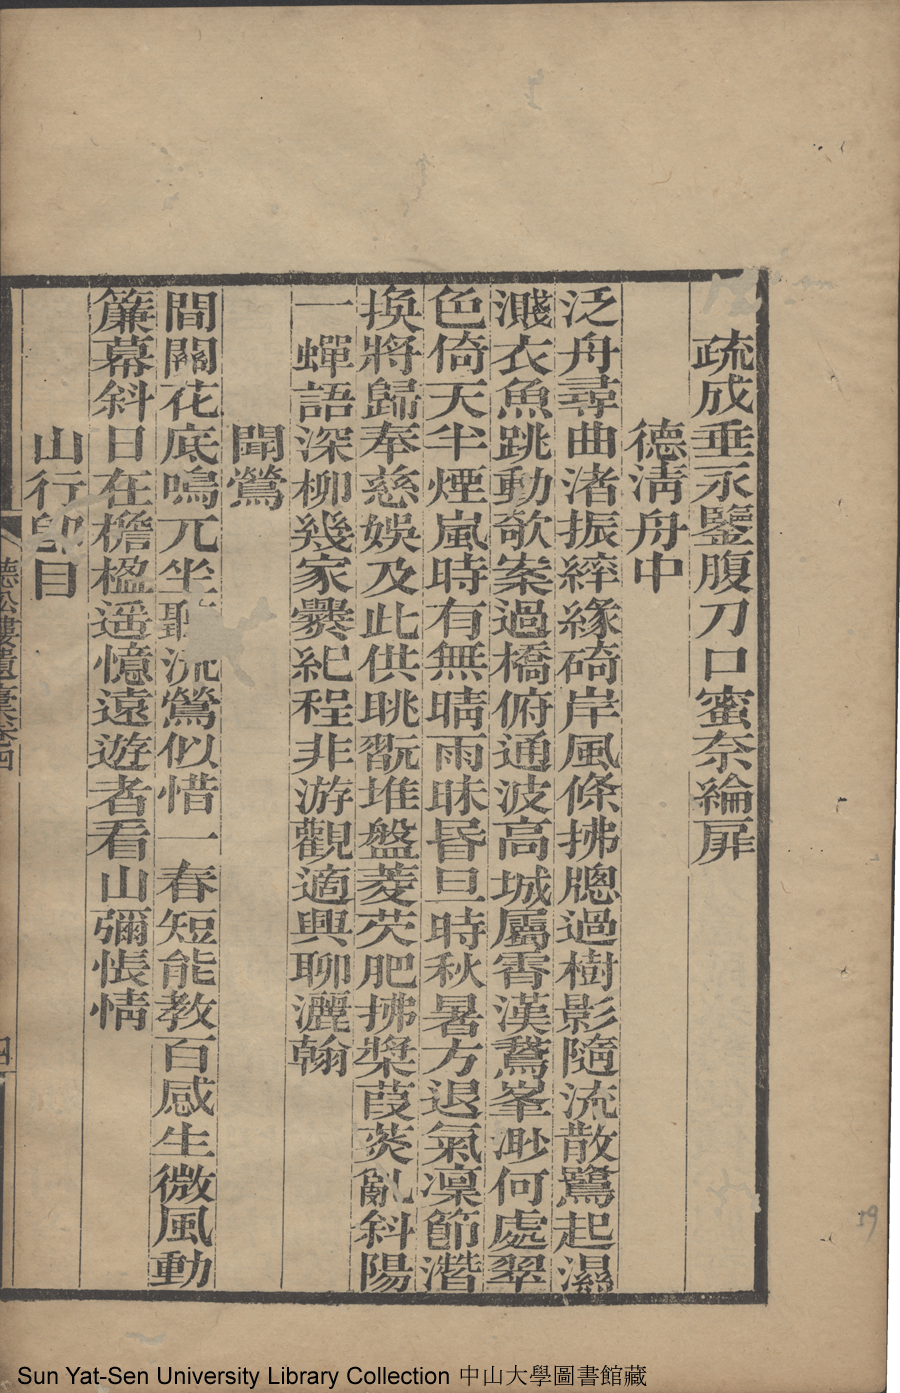 疏成垂永鑒腹刀口蜜奈綸扉
德淸舟中
泛舟尋曲渚振綷緣碕岸風條拂牕過樹影隨流散鷺起濕
濺衣魚跳動欹案過橋俯通波高城屬霄漢鶩峯渺何處翠
色倚天半煙嵐時有無晴雨昧昏旦時秋暑方退氣凜節潛
換將歸奉慈娛及此供眺翫堆盤菱芡肥拂槳葭菼亂斜陽
一蟬語深柳幾家爨紀程非游觀適興聊灑翰
聞鶯
間關花底鳴兀坐聽流鶯似惜一春短能教百感生微風動
簾幕斜日在檐楹遥憶遠遊者看山彌悵情
山行卽目
德松樓遺稾卷四
四
19
Sun Yat-Sen University Library Collection 中山大學圖書館藏